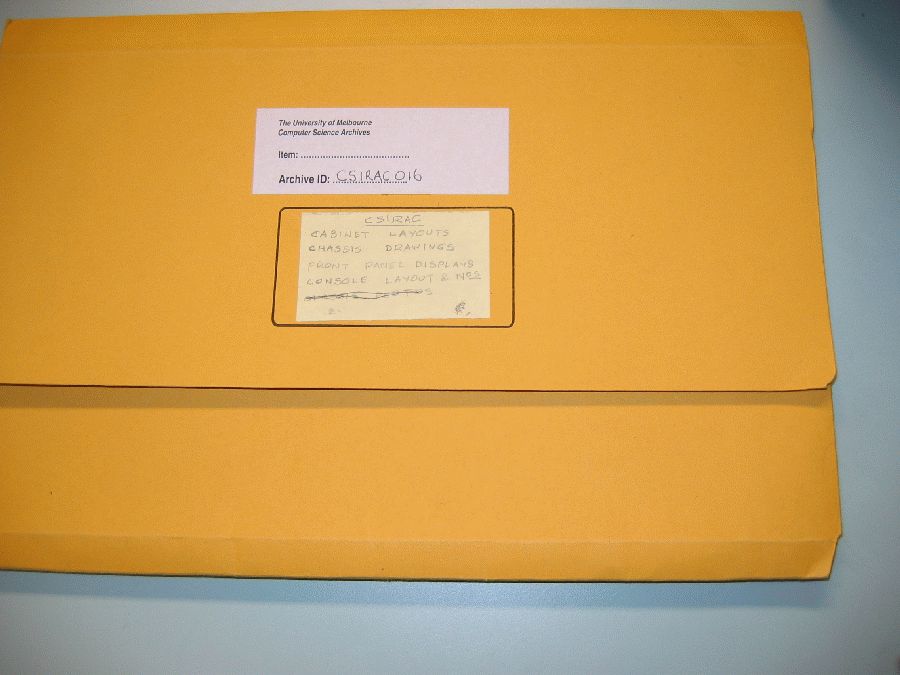 The University of Melbourne
Computer Science Archives
Item: ........................................
Archive ID: CSIRAC016
CSIRAC
CABINET LAYOUTS
CHASSIS DRAWINGS
FRONT PANEL DISPLAYS
CONSOLE LAYOUT & NOS